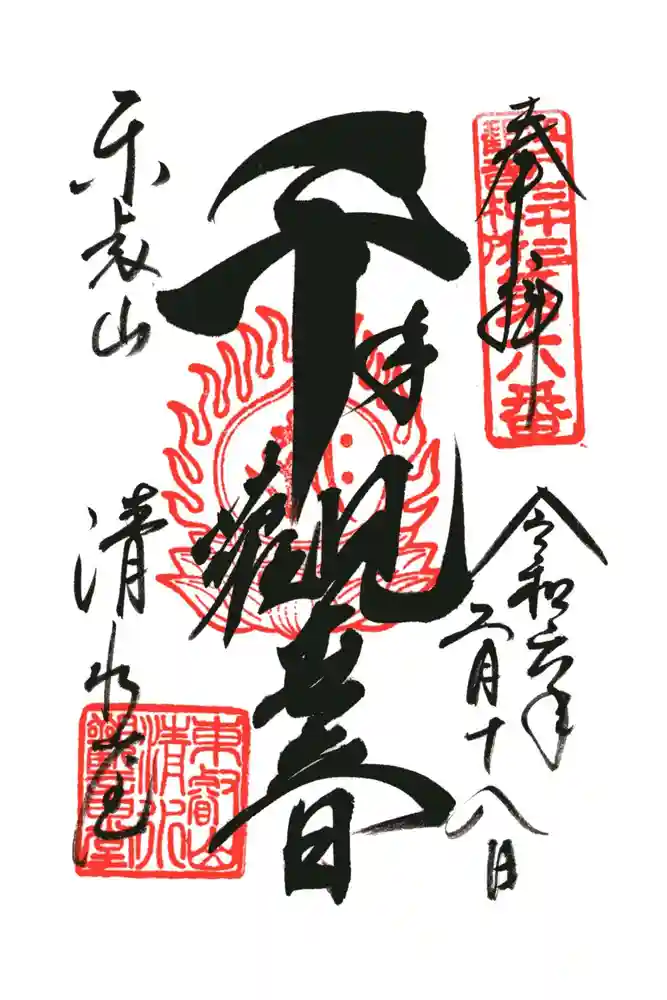 奉拝
令和六年
二月十八日
千手観音
東叡山
清水堂
三十三
第六番
東叡山
清水
観音堂